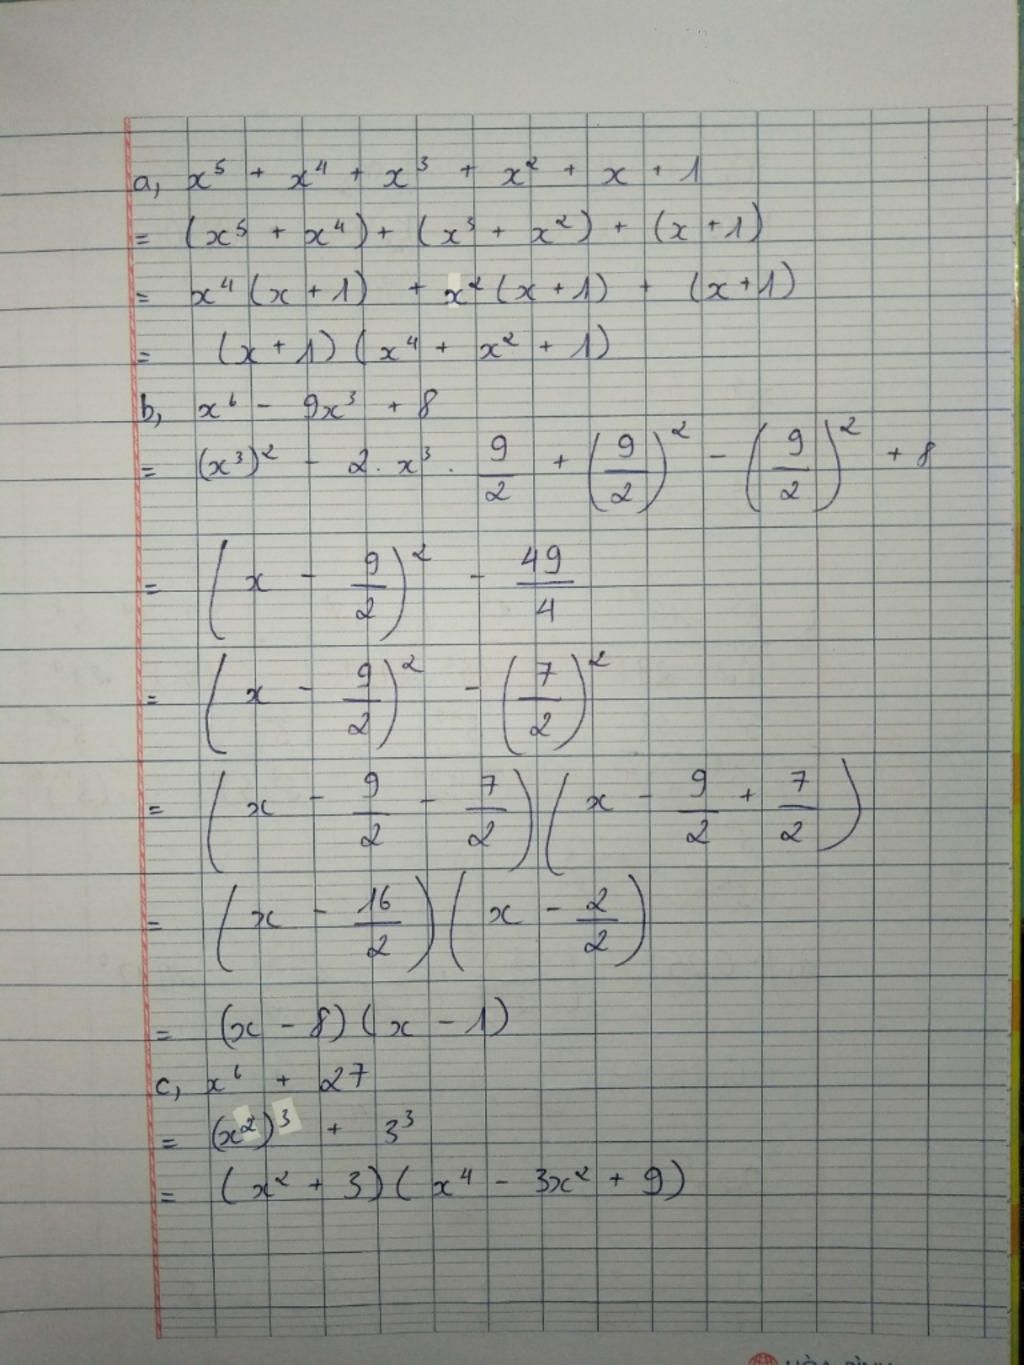 a, x⁵ + x⁴ + x³ + x² + x + 1
= (x⁵ + x⁴) + (x³ + x²) + (x + 1)
= x⁴ (x + 1) + x² (x + 1) + (x + 1)
= (x + 1) (x⁴ + x² + 1)
b, x⁶ - 9x³ + 8
= (x³)² - 2 . x³ . 9/2 + (9/2)² - (9/2)² + 8
= (x - 9/2)² - 49/4
= (x - 9/2)² - (7/2)²
= (x - 9/2 - 7/2) (x - 9/2 + 7/2)
= (x - 16/2) (x - 2/2)
= (x - 8) (x - 1)
c, x⁶ + 27
= (x²)³ + 3³
= (x² + 3) (x⁴ - 3x² + 9)